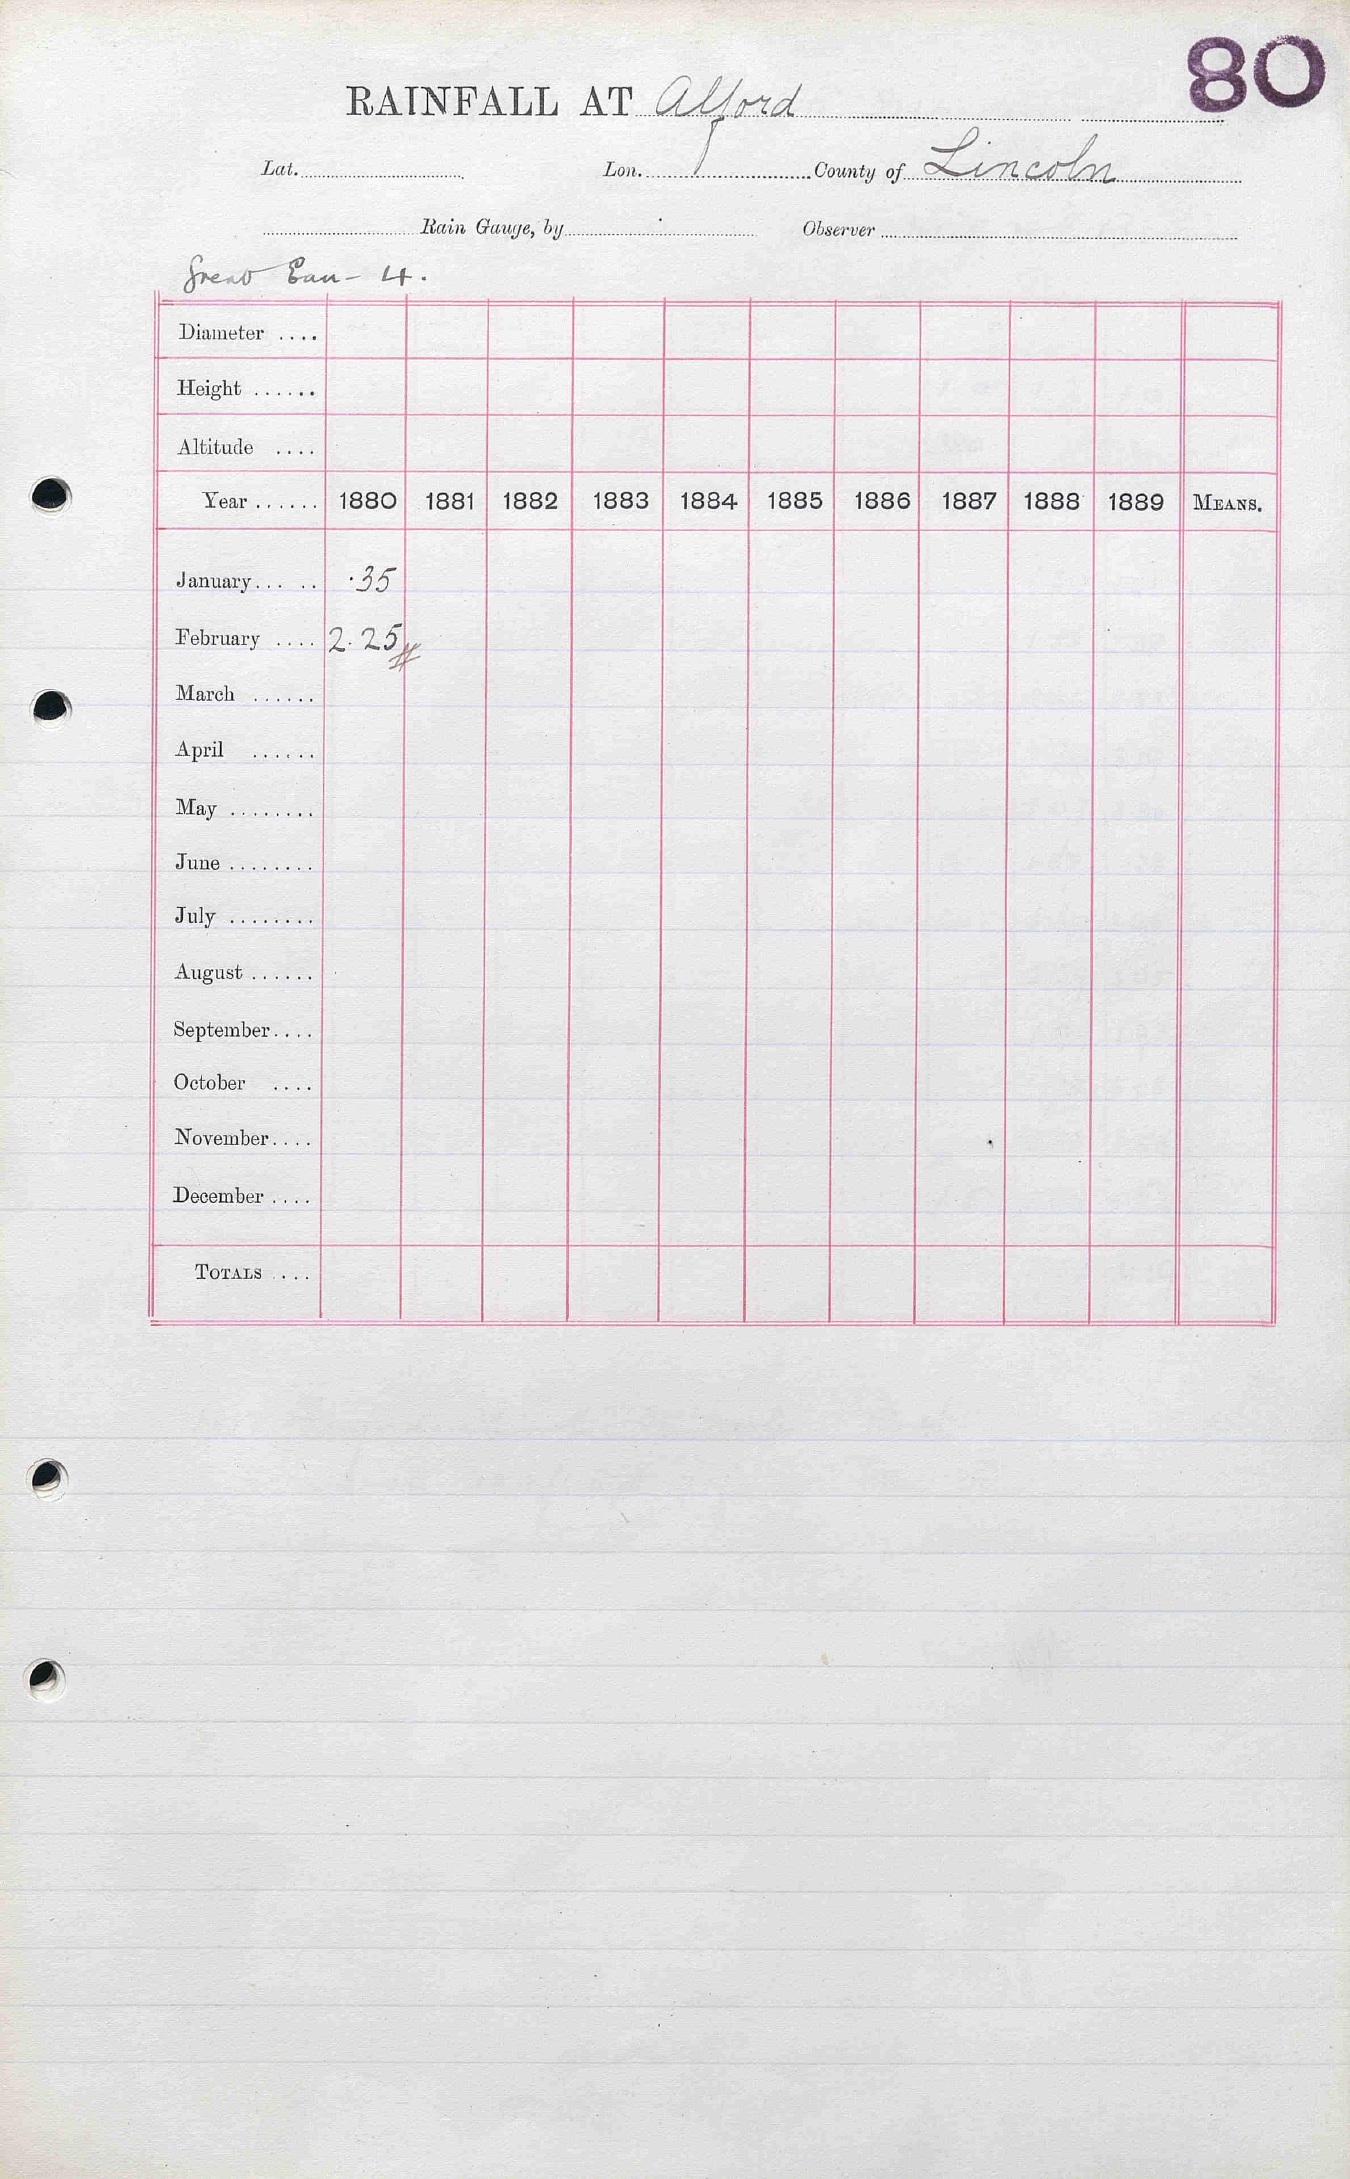 80
RAINFALL AT Alford
Lat. Lon. County of Lincoln
Rain Gauge, by Observer
Great Eau - 4.
Diameter ....
Height ......
Altitude ....
Year ...... 1880 1881 1882 1883 1884 1885 1886 1887 1888 1889 MEANS.
January... .. .35
February .... 2.25
March ......
April ......
May ........
June ........
July ........
August ......
September....
October ....
November....
December ....
TOTALS ....